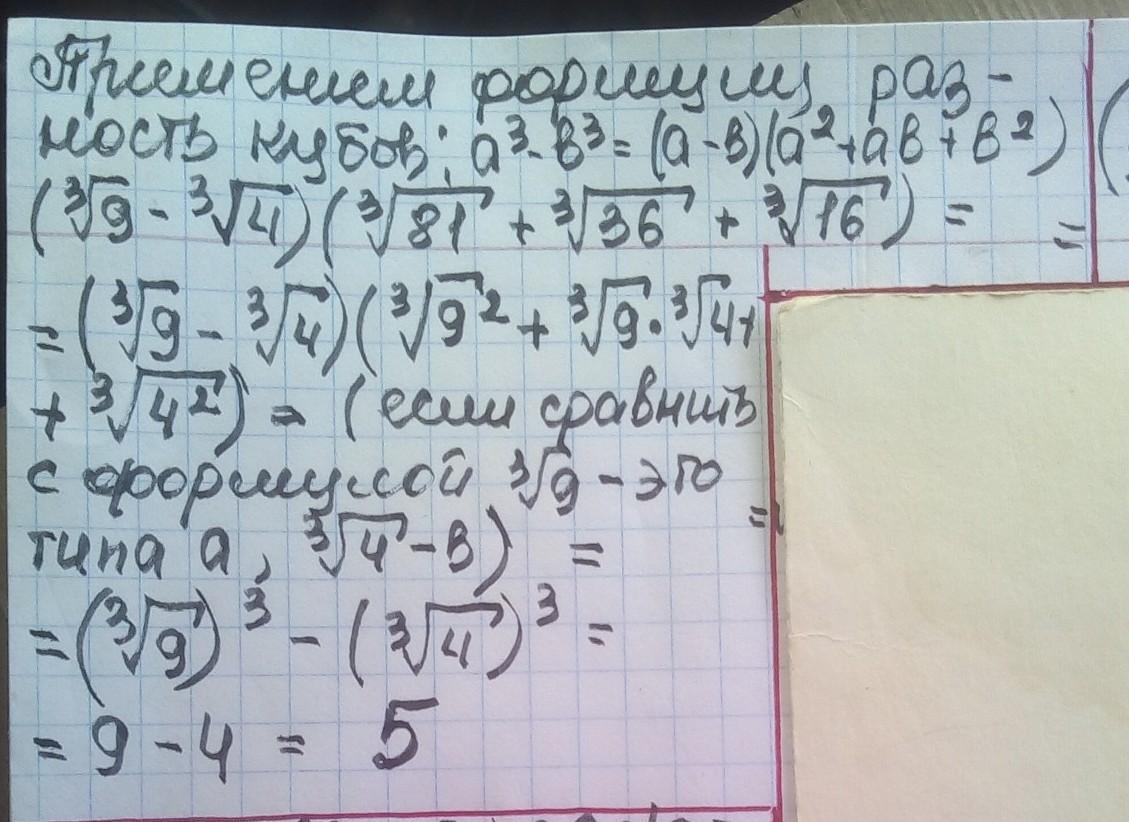 Применим формулу раз-
ность кубов: a³-в³=(a-в)(a²+aв+в²)
(∛9 - ∛4)(∛81 + ∛36 + ∛16) =
=(∛9 - ∛4)(∛9² + ∛9·∛4+
+ ∛4²) = (если сравнить
с формулой ∛9 - это
типа a, ∛4 - в) =
=(∛9)³ - (∛4)³ =
= 9 - 4 = 5